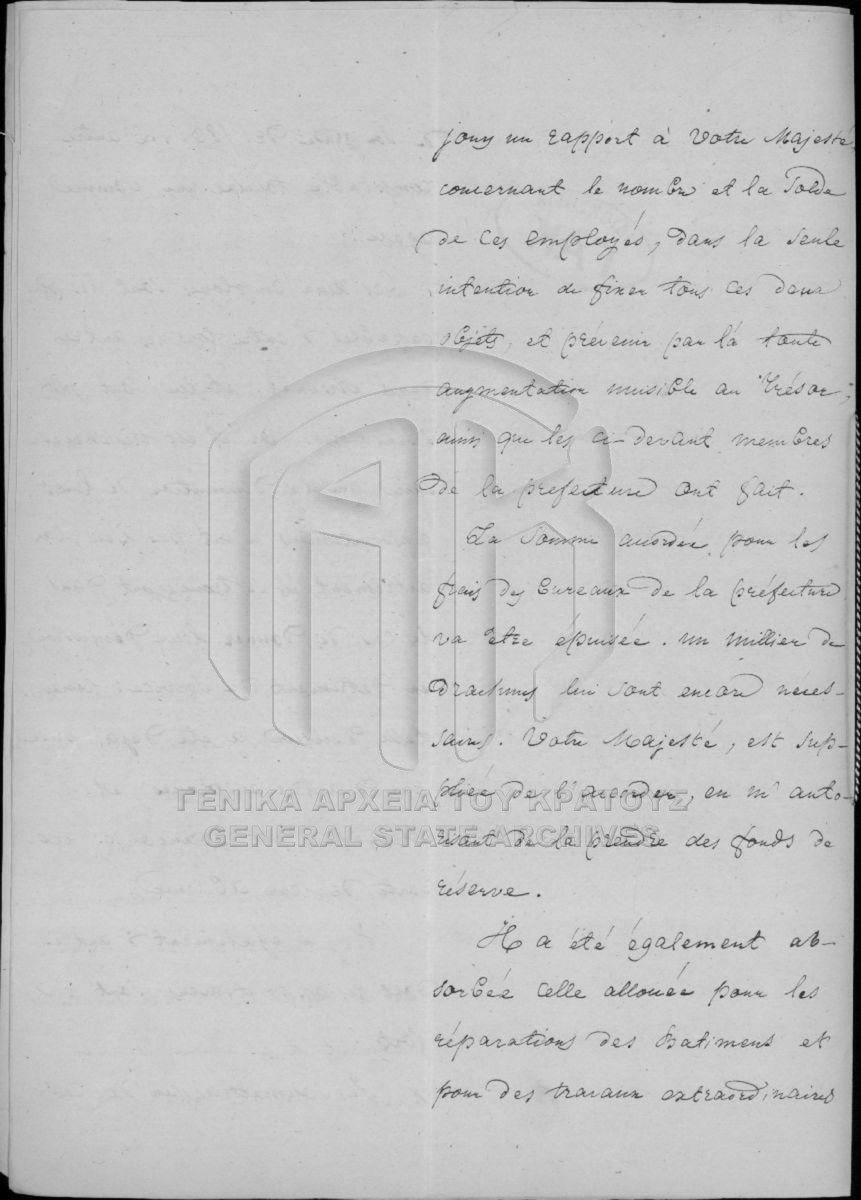 jours un rapport à Votre Majesté,
concernant le nombre et la solde
de ces employés, dans la seule
intention de fixer tous ces deux
objets, et prévenir par là toute
augmentation nuisible au Trésor,
ainsi que les ci-devant membres
de la préfecture ont fait.
La somme accordée pour les
frais des bureaux de la préfecture
va être épuisée. un millier de
drachmes lui sont encore néces-
saires. Votre Majesté, est sup-
pliée de l'accorder, en m'auto-
risant de la prendre des fonds de
réserve.
Il a été également ab-
sorbée celle allouée pour les
réparations des Batimens et
pour des travaux extraordinaires
ΓΕΝΙΚΑ ΑΡΧΕΙΑ ΤΟΥ ΚΡΑΤΟΥΣ
GENERAL STATE ARCHIVES